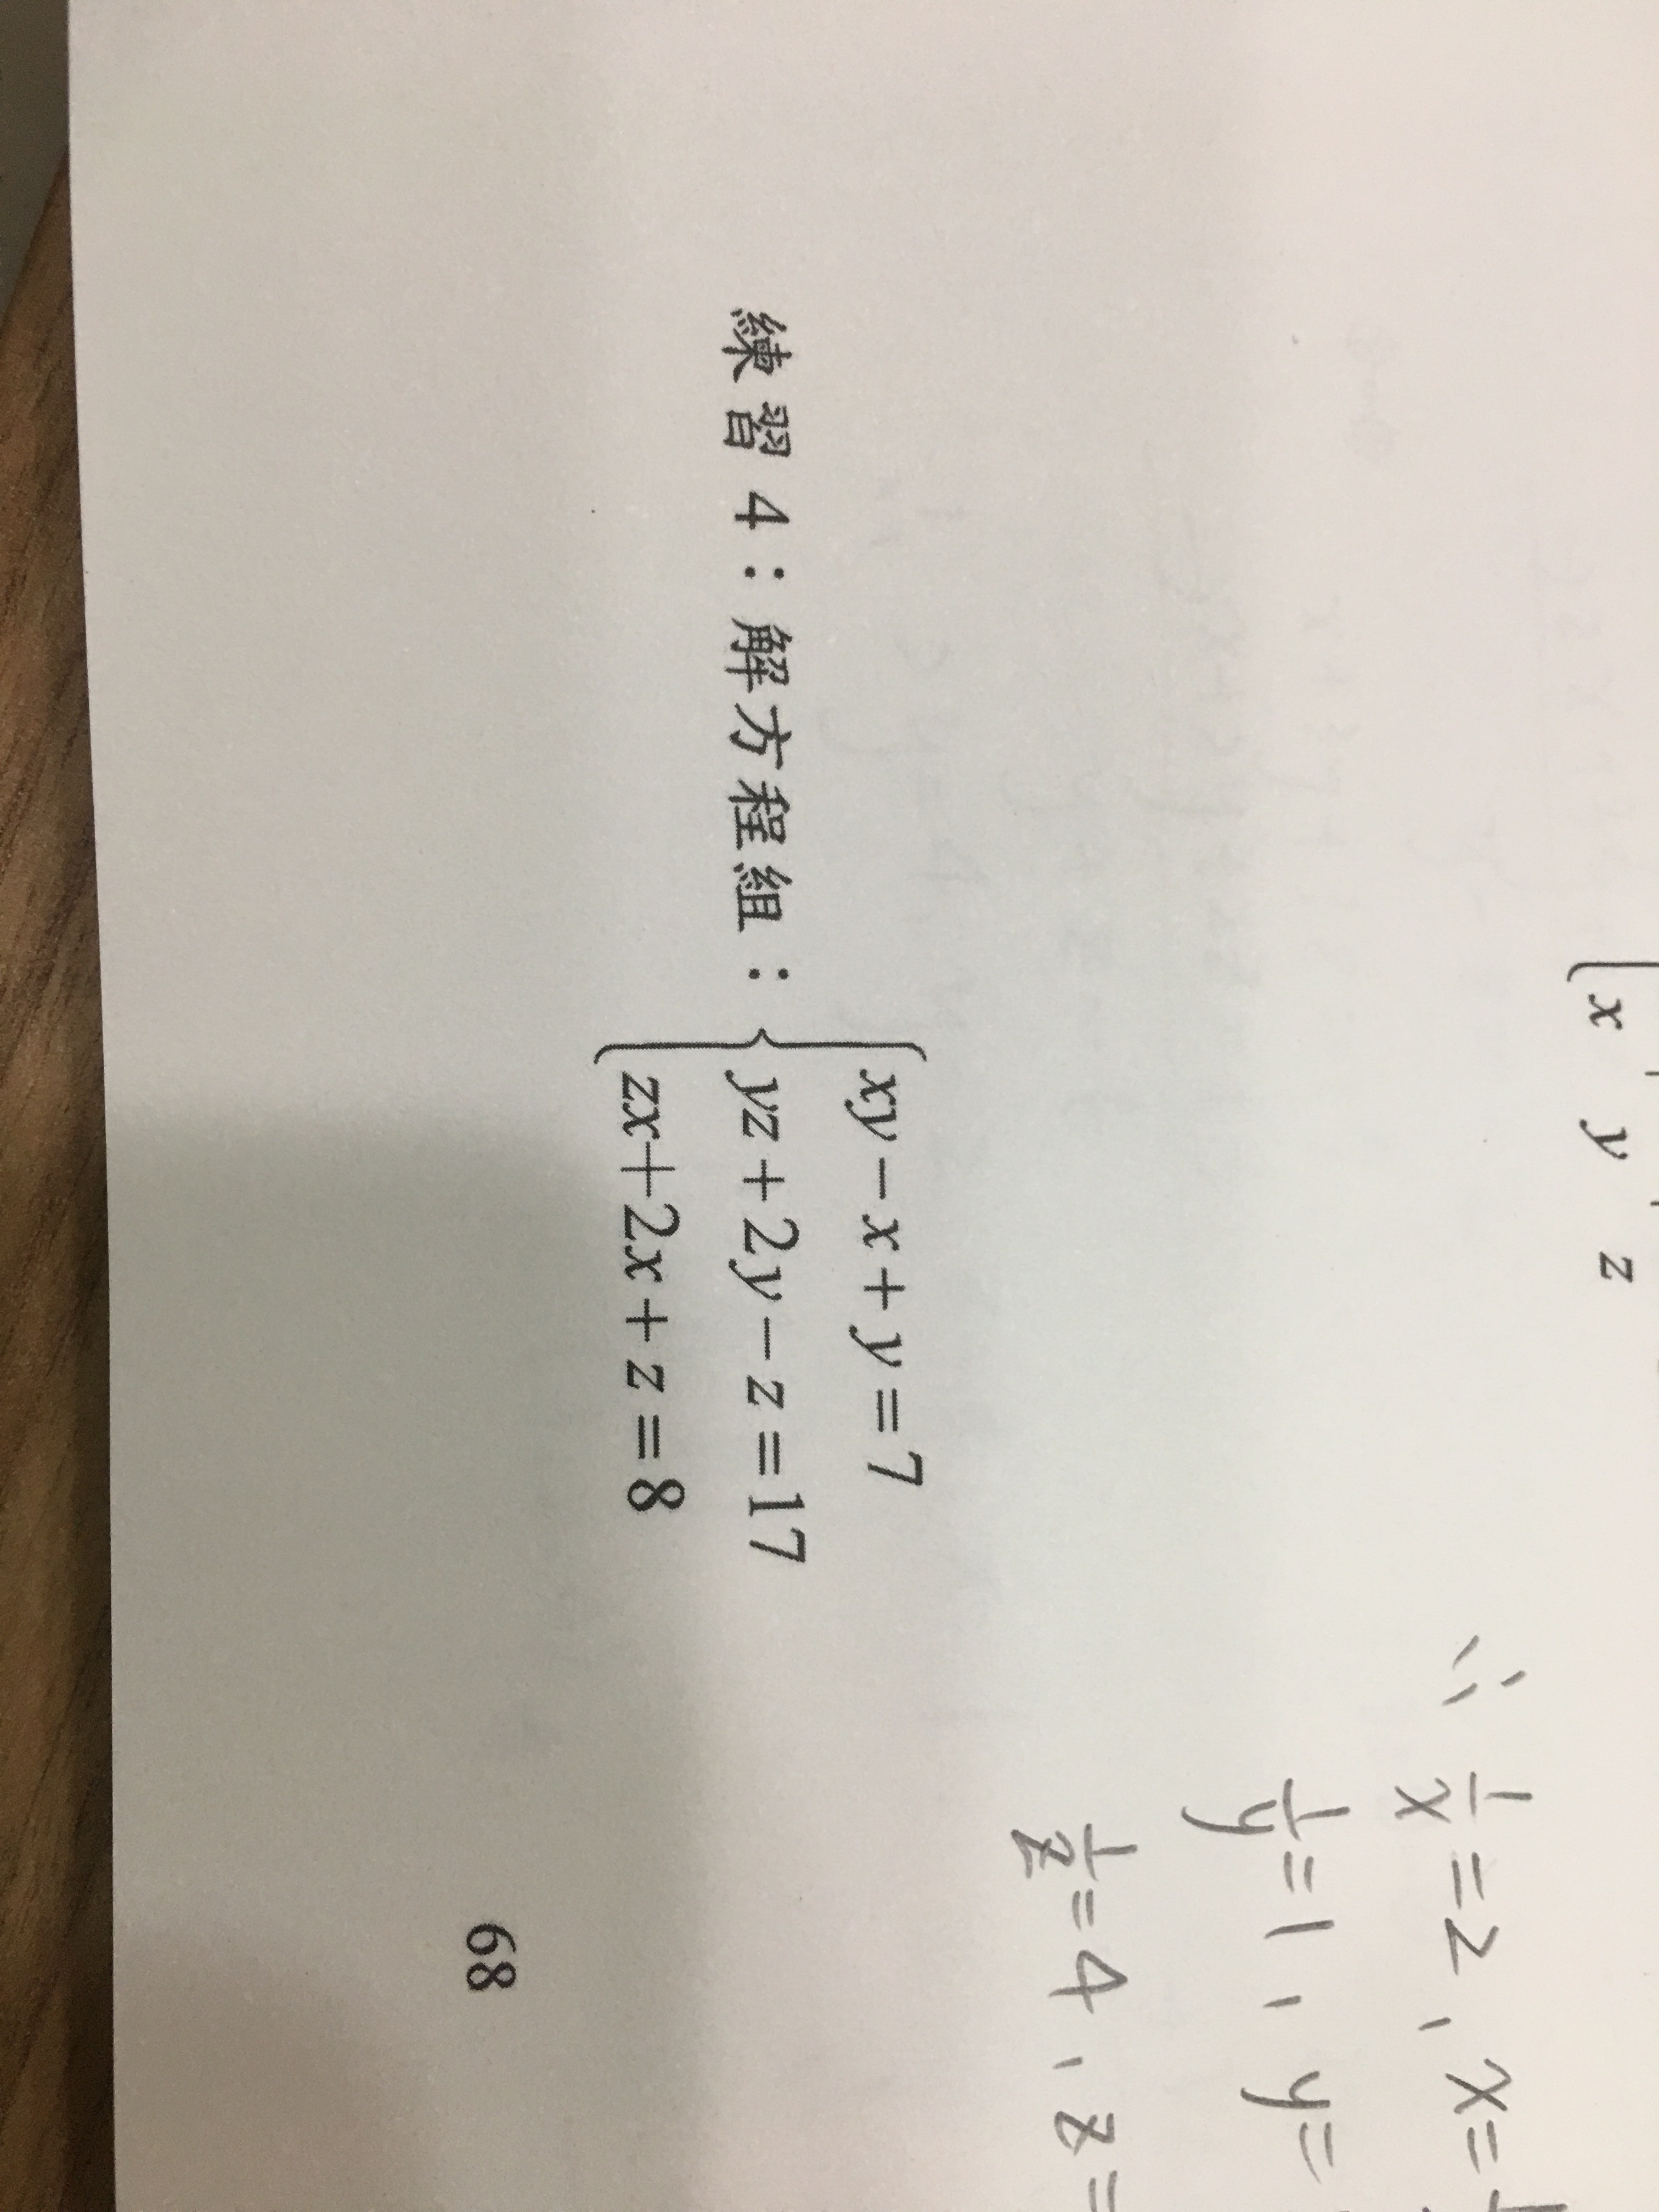 x y z
∴ 1/x = 2, x =
1/y = 1, y =
1/z = 4, z =
練習 4：解方程組：
xy − x + y = 7
yz + 2y − z = 17
zx + 2x + z = 8
68